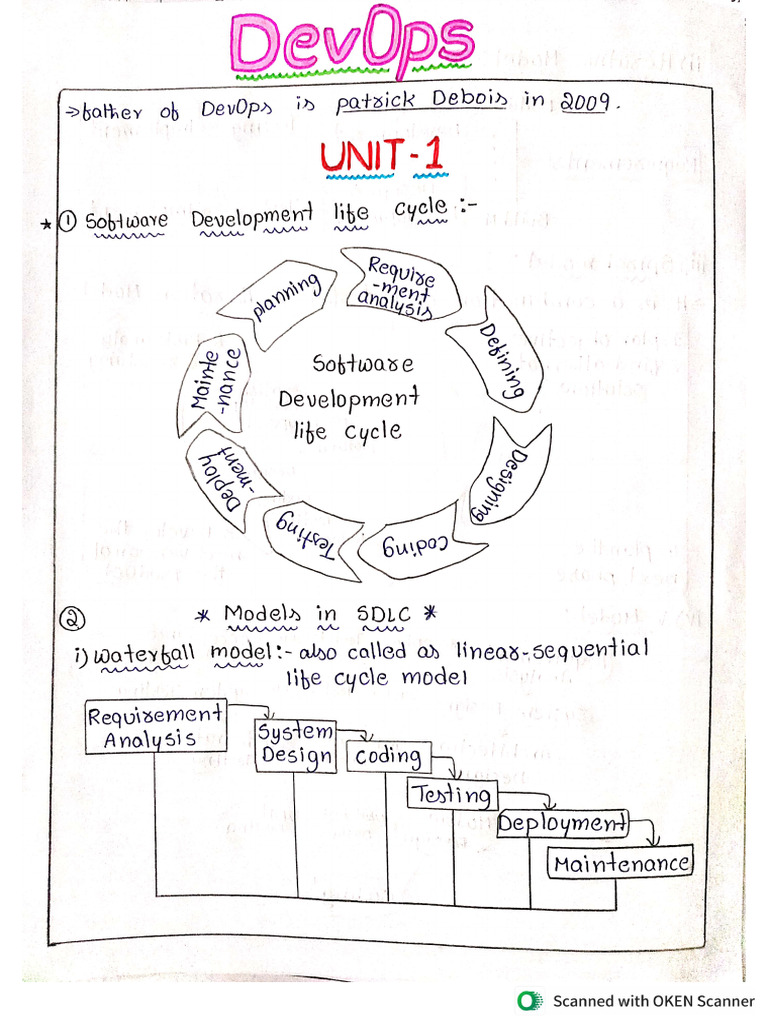 DevOps
→father of DevOps is patrick Debois in 2009.
UNIT-1
* ① Software Development life cycle:-
planning
Require
-ment
analysis
Defining
Designing
Coding
Testing
Deploy
-ment
Mainte
-nance
Software
Development
life cycle
② * Models in SDLC *
i) waterfall model:- also called as linear-sequential
life cycle model
Requirement
Analysis
System
Design
coding
Testing
Deployment
Maintenance
Scanned with OKEN Scanner